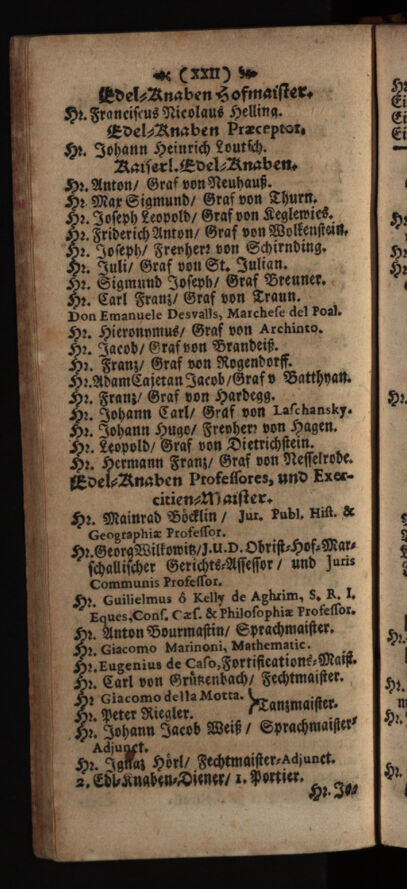 (XXII)
Edel-Knaben Hofmaister.
Hr. Franciscus Nicolaus Helling.
Edel-Knaben Præceptor.
Hr. Johann Heinrich Loutsch.
Kaiserl. Edel-Knaben.
Hr. Anton/ Graf von Neuhauß.
Hr. Max Sigmund/ Graf von Thurn.
Hr. Joseph Leopold/ Graf von Keglewics.
Hr. Friderich Anton/ Graf von Wolkenstein.
Hr. Joseph/ Freyherr von Schirnding.
Hr. Juli/ Graf von St. Julian.
Hr. Sigmund Joseph/ Graf Breuner.
Hr. Carl Franz/ Graf von Traun.
Don Emanuele Desvalls, Marchese del Poal.
Hr. Hieronymus/ Graf von Archinto.
Hr. Jacob/ Graf von Brandeiß.
Hr. Franz/ Graf von Rogendorff.
Hr. Adam Cajetan Jacob/ Graf v Batthyan.
Hr. Franz/ Graf von Hardegg.
Hr. Johann Carl/ Graf von Laschansky.
Hr. Johann Hugo/ Freyherr von Hagen.
Hr. Leopold/ Graf von Dietrichstein.
Hr. Hermann Franz/ Graf von Nesselrode.
Edel-Knaben Professores, und Exer-
citien-Maister.
Hr. Mainrad Böcklin / Jur. Publ. Hist. &
Geographiæ Professor.
Hr. Georg Wilkowitz/ J.U.D. Obrist-Hof-Mar-
schallischer Gerichts-Assessor / und Juris
Communis Professor.
Hr. Guilielmus ô Kelly de Aghrim, S. R. I.
Eques, Cons. Cæs. & Philosophiæ Professor.
Hr. Anton Bourmastin/ Sprachmaister.
Hr. Giacomo Marinoni, Mathematic.
Hr. Eugenius de Caso, Fortifications-Maist.
Hr. Carl von Grützenbach/ Fechtmaister.
Hr Giacomo della Motta. } Tanzmaister.
Hr. Peter Riegler.
Hr. Johann Jacob Weiß / Sprachmaister-
Adjunct.
Hr. Ignaz Hörl/ Fechtmaister-Adjunct.
2. Edl-Knaben-Diener/ 1. Portier.
Hr. Jo-